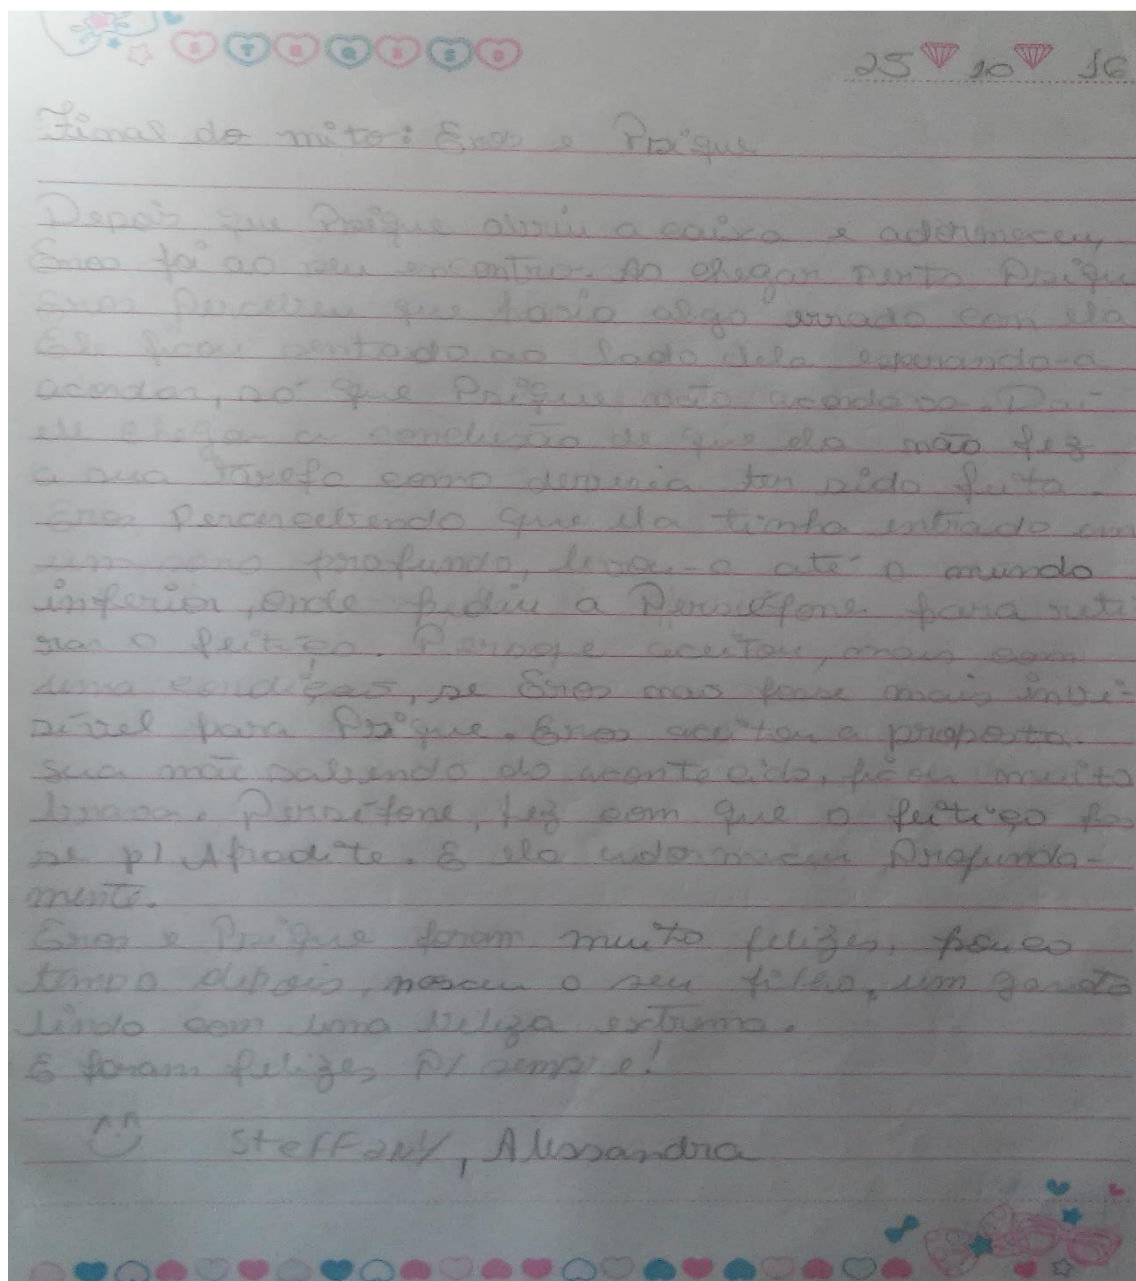 25 10 16
Final do mito: Eros e Psique
Depois que Psique abriu a caixa e adormeceu,
Eros foi ao seu encontro. Ao chegar perto Psique
Eros percebeu que havia algo errado com ela
Ele ficou sentado ao lado dela esperando-a
acordar, só que Psique não acordava. Daí
ele chegou a conclusão de que ela não fez
a sua tarefa como deveria ter sido feita.
Eros, percercebendo que ela tinha entrado em
um sono profundo, levou-a até o mundo
inferior, onde pediu a Perséfone para reti
rar o feitiço. aceitou, mais com
uma condição, se Eros não fosse mais invi-
sível para Psique. Eros aceitou a proposta.
Sua mãe sabendo do acontecido, ficou muito
brava. Perséfone, fez com que o feitiço fos
se p/ Afrodite. E ela adormeceu profunda-
mente.
Eros e Psique foram muito felizes, pouco
tempo depois, nasceu o seu filho, um garoto
lindo com uma beleza extrema.
E foram felizes p/ sempre!
Steffany, Alessandra